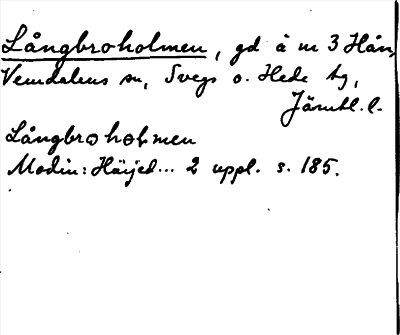 Långbroholmen, gd å nr 3 Hån,
Vemdalens sn, Svegs o. Hede tg,
Jämtl. l.
Långbroholmen
Modin: Härjed... 2 uppl. s. 185.